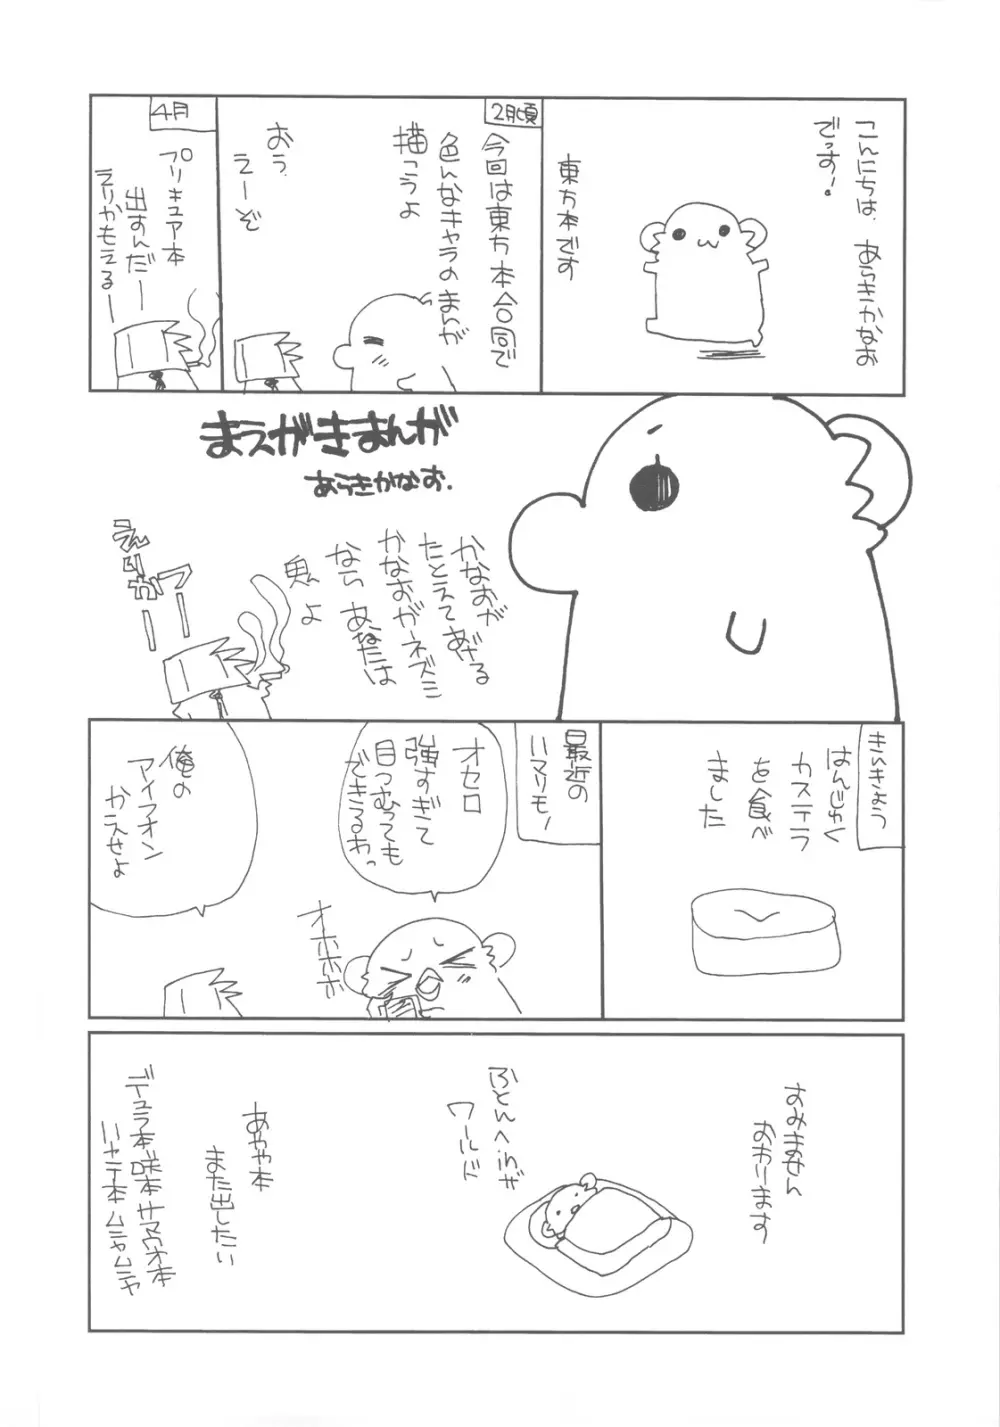 こんにちは、あらきかなお
でっす!
東方本です
2月頃
今回は東方本合同で
色んなキャラのまんが
描こうよ
おう、
えーぞ
4月
プリキュア本
出すんだー
えりかもえるー
まえがきまんが
あらきかなお.
かなおが
たとえてあげる
かなおがネズミ
なら あなたは
魚よ
えりかー
っー
きんきょう
はんじゅく
カステラ
を食べ
ました
最近の
ハマリモノ
オセロ
強すぎて
目つむっても
できるわっ
オホホホ
俺の
アイフォン
かえせよ
すみません
おわります
ふとんへinザ
ワールド
あやや本
また出したい
デュラ本咲本サマウオ本
ハヤテ本ムニャムニャ